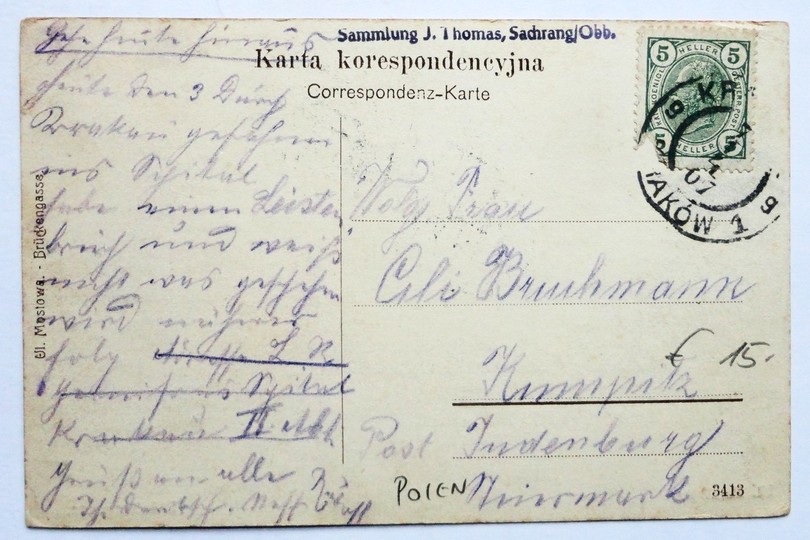 Sammlung J. Thomas, Sachrang/Obb.
Karta korespondencyjna
Correspondenz-Karte
5 HELLER 5
5 HELLER 5
KRAKÓW 1
9
07
Ul. Mostowa. - Brückengasse.
Gehe heute hinaus
heute den 3 Durch
Krakau gefahren
ins Spital
habe einen Leisten
bruch und weiß
nicht was geschehen
wird
folg
Spital
Krakau II Abt
Gruß an alle
Frau
Cili Bruckmann
Kumpitz
Post Judenburg
Steiermark
€ 15.-
POLEN
3413